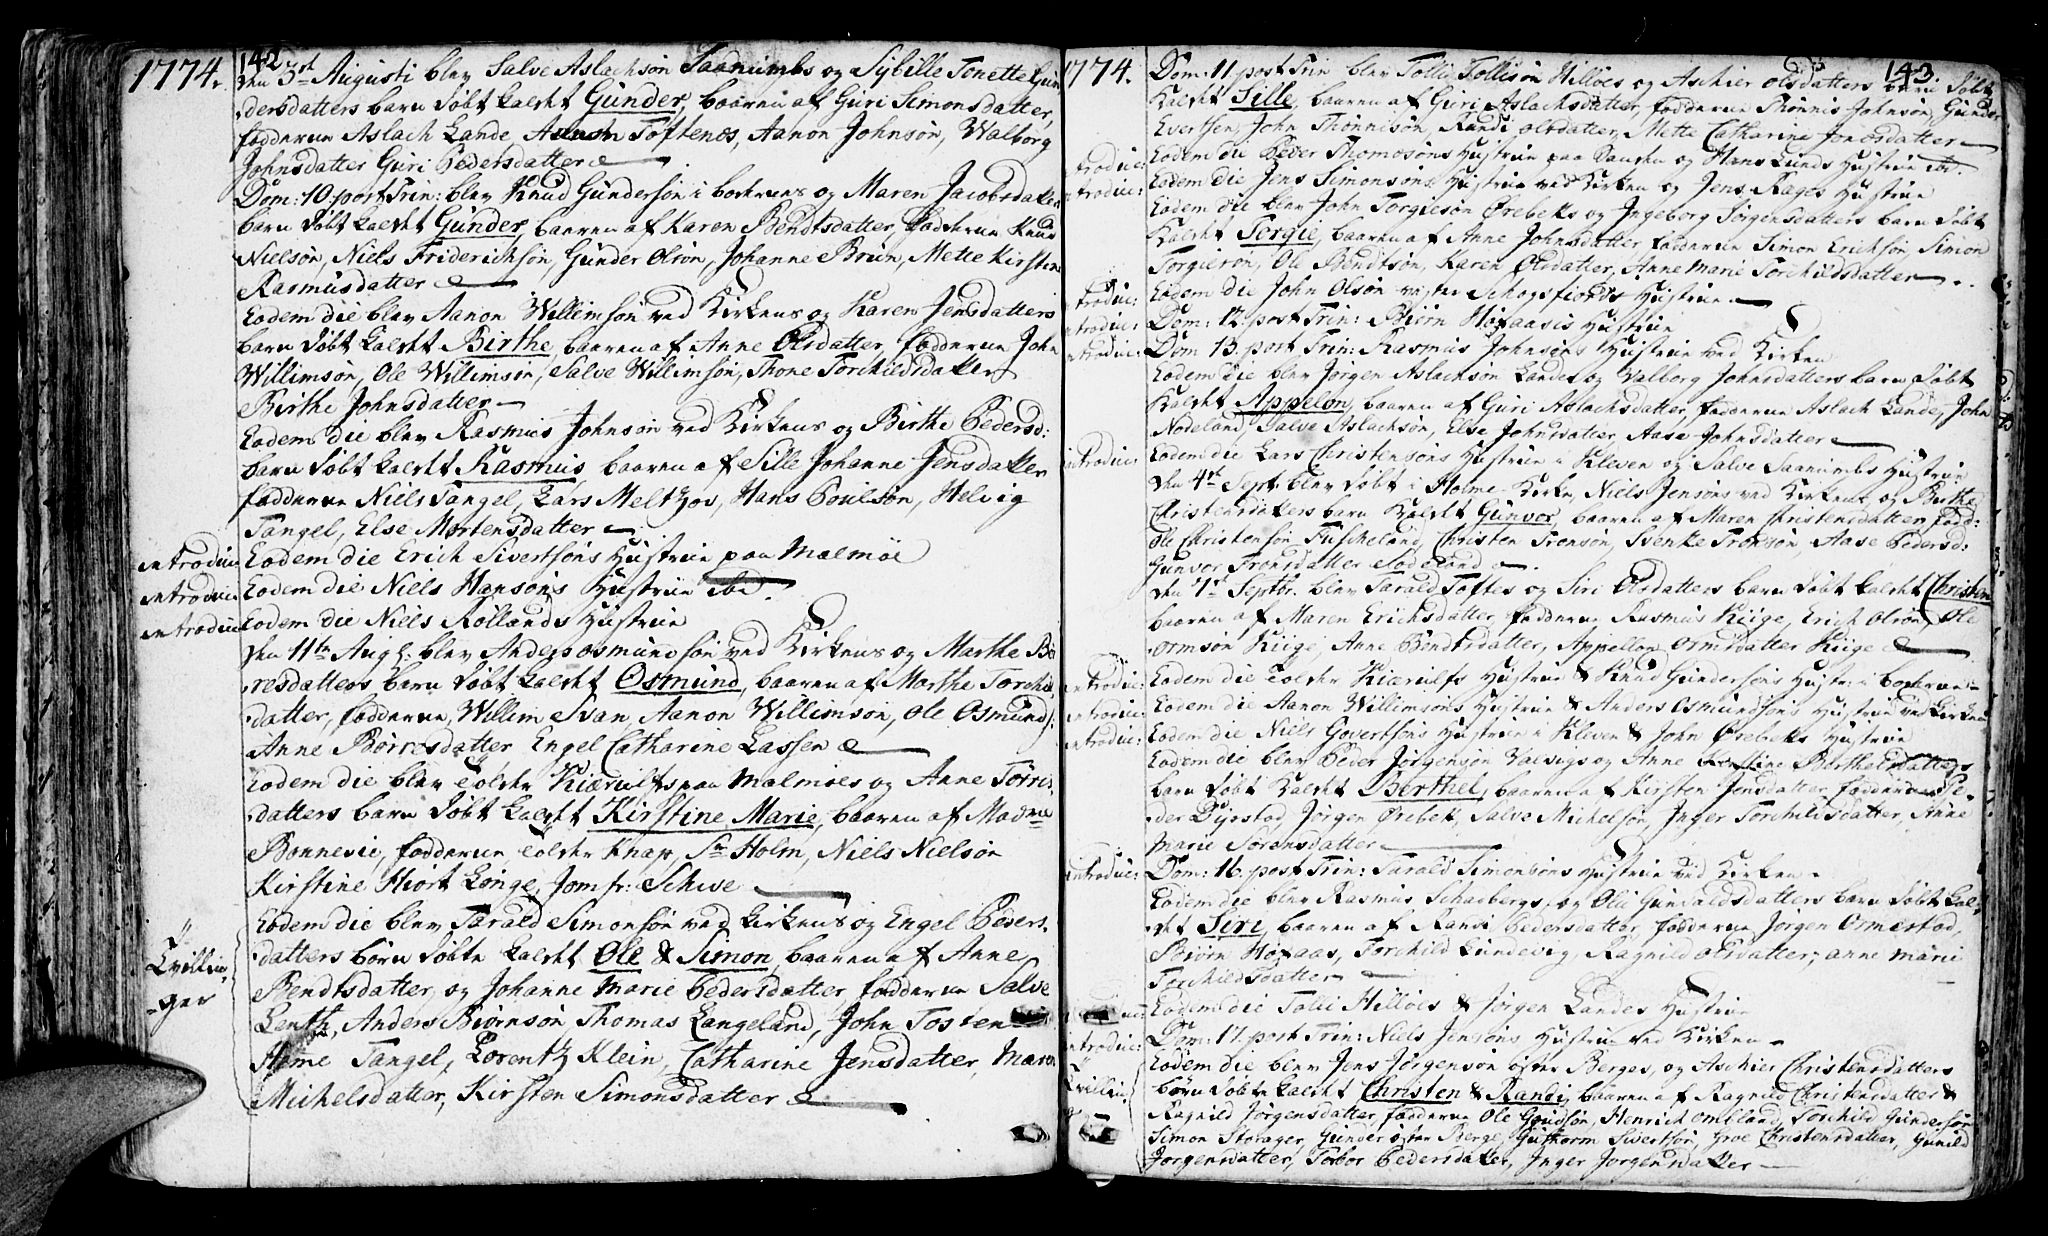 1774.
142
Den 3die Augusti blev Salve Aslachsøn Saanumbs og Sybille Tonette Gun
dersdatters barn døbt kaldt Gunder, baaren af Guri Simonsdatter,
fadderne Aslach Lande, Toftenes, Aanon Johnsøn, Walborg
Johnsdatter Guri Pedersdatter
Dom: 10. post Trin: blev Knud Gundersøn i bockvens og Maren Jacobsdatter
barn døbt kaldt Gunder, baaren af Karen Bendtsdatter, Fadderne Knud
Nielsøn, Niels Friderichsøn, Gunder Olsøn, Johanne Brun, Mette Kirstine
Rasmusdatter
Eodem die blev Aanon Willimsøn ved Kirkens og Karen Jensdatters
barn døbt kaldt Birthe, baaren af Anne Olsdatter, fadderne John
Willimsøn, Ole Willimsøn, Salve Willimsøn, Thone Torchildsdatter
Birthe Johnsdatter
Eodem die blev Rasmus Johnsøn ved Kirkens og Birthe Pedersd:
barn døbt kaldt Rasmus baaren af Sille Johanne Jensdatter
fadderne Niels Tangel, Lars Meltzov, Hans Poulsøn, Helvig
Tangel, Else Mortensdatter
introduc Eodem die Erich Sivertsøns Hustrue paa Malmøe
introduc Eodem die Niels Hansøns Hustrue ibid.
introduc Eodem die Niels Røllands Hustrue
Den 11te Aug. blev Anders Osmundsøn ved Kirkens og Marthe Bø
resdatters barn døbt kaldt Osmund, baaren af Marthe Torchils
datter, fadderne, Willim Svan, Aanon Willimsøn, Ole Osmunds:
Anne Børresdatter Engel Catharine Lassen
Eodem die blev Tolder Kiærulfs paa Malmøes og Anne Tørris
datters barn døbt kaldt Kirstine Marie, baaren af Madme
Bonnevie, fadderne Tolder Knap, Sr Holm, Niels Nielsøn
Kirstine Hiort Longe, Jomfr: Schive
Tvillin
ger
Eodem die blev Tarald Simonsøn ved Kirkens og Engel Peders
datters børn døbte kaldt Ole & Simon, baaren af Anne
Bendtsdatter, og Johanne Marie Pedersdatter, fadderne Salve
Lenth, Anders Biørnsøn, Thomas Langeland, John Tosten
Home Tangel, Lorentz Klein, Catharine Jensdatter, Maren
Michelsdatter, Kirsten Simonsdatter
1774.
143
Dom: 11. post Trin blev Tolli Tollisøn Hilløes og Aschier Olsdatters barn døbt
kaldt Sille, baaren af Guri Aslachsdatter, fadderne Thønnis Johnsøn, Gunder
Evertsen, John Thønnisøn, Randi Olsdatter, Mette Catharine Jensdatter
introduc: Eodem die Peder Thomæsøns Hustrue paa Randen og Hans Lunds Hustrue ibd.
introduc: Eodem die Jens Simonsøns Hustrue ved Kirken og Jens Rages Hustrue
Eodem die blev John Torgiesøn Ørebeks og Ingeborg Jørgensdatters barn døbt
kaldt Torgie, baaren af Anne Johnsdatter, fadderne Simon Erichsøn, Simon
Torgiesøn, Ole Bendtsøn, Karen Olsdatter, Anne Marie Torchildsdatter
introduc: Eodem die John Olsøn vester Schogsfiords Hustrue
introduc: Dom: 12. post Trin: Biørn Høyaasis Hustrue
introduc: Dom 13. post Trin: Rasmus Johnsøns Hustrue ved Kirken
Eodem die blev Jørgen Aslachsøn Landes og Valborg Johnsdatters barn døbt
kaldt Appelon, baaren af Guri Aslachsdatter, fadderne Aslach Lande, John
Nodeland, Salve Aslachsøn, Else Johnsdatter, Aase Johnsdatter
introduc: Eodem die Lars Christensøns Hustrue i Kleven og Salve Saanumbs Hustrue
Den 4de Sept: blev døbt i Holme Kirke, Niels Jensøns ved Kirkens og Birthe
Christensdatters barn kaldt Gunvor, baaren af Maren Christensdatter, fadd:
Ole Christensøn Fuscheland, Christen Tronsøn, Svenke Tronsøn, Aase Pedersd:
Gunvor Tronsdatter Sodeland
Den 7de Septbr. blev Tarald Toftes og Siri Olsdatters barn døbt kaldt Christen
baaren af Maren Erichsdatter, fadderne Rasmus Kiige, Erich Olsøn, Ole
Ormsøn Kiige, Anne Bendtsdatter, Appellon Ormsdatter Kiige
introduc: Eodem die Tolder Kiærulfs Hustrue & Knud Gundersøns Hustr: i bockvens
introduc: Eodem die Aanon Willimsøns Hustrue & Anders Osmundsøns Hustrue ved Kirken
introduc: Eodem die Niels Govertsøns Hustrue i Kleven & John Ørebeks Hustrue
Eodem die blev Peder Jørgensøn Valvigs og Anne Barthelsdatters
barn døbt kaldt Berthel, baaren af Kirsten Jensdatter, fadderne Pe
der Dyestad, Jørgen Ørebek, Salve Michelsøn, Inger Torchildsdatter, Anne
Marie Sørensdatter
introduc: Dom: 16. post Trin: Tarald Simonsøns Hustrue ved Kirken
Eodem die blev Rasmus Schaebergs og Oli Gunvaldsdatters barn døbt kal
det Siri, baaren af Randi Pedersdatter, fadderne Jørgen Ormestad,
Biørn Høyaas, Torchild Lundevig, Ragnild Olsdatter, Anne Marie
Torchildsdatter
Eodem die Tolli Hilløes & Jørgen Landes Hustrue
introduc: Dom: 17. post Trin: Niels Jensøns Hustrue ved Kirken
Tvillin
Eodem die blev Jens Jørgensøn øster Berges, og Aschier Christensdatters
børn døbte kaldt Christen & Randi, baaren af Ragnild Christensdatter &
Ragnild Jørgensdatter, fadderne Ole Gundsøn, Henrich Ombland, Torchild Gundersøn
Simon Storager, Gunder øster Berge, Guthorm Sivertsøn, Groe Christensdatter, Gunild
Jørgensdatter, Torbor Pedersdatter, Inger Jørgensdatter